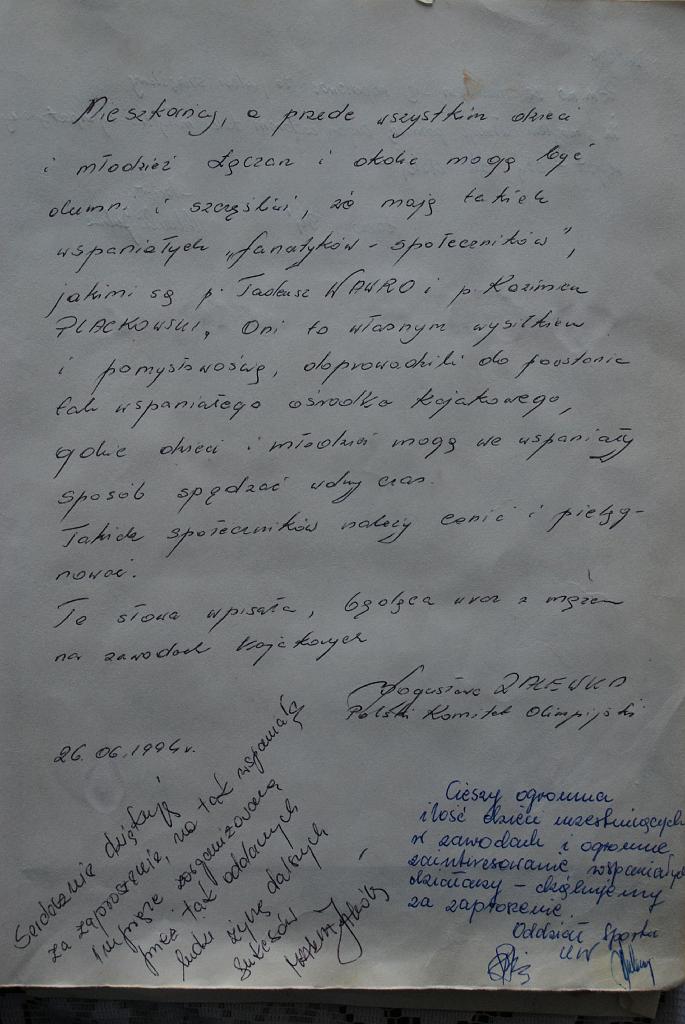 Mieszkańcy, a przede wszystkim dzieci
i młodzież Łączan i okolic mogą być
dumni i szczęśliwi, że mają takich
wspaniałych „fanatyków - społeczników",
jakimi są p. Tadeusz WAWRO i p. Kazimierz
PLACKOWSKI. Oni to własnym wysiłkiem
i pomysłowością, doprowadzili do powstania
tak wspaniałego ośrodka kajakowego,
gdzie dzieci i młodzież mogą we wspaniały
sposób spędzać wolny czas.
Takich społeczników należy cenić i pielęg-
nować.
Te słowa wpisała, będąca wraz z mężem
na zawodach kajakowych
Bogusława ZALEWSKA
Polski Komitet Olimpijski
26.06.1994r.
Serdecznie dziękuję
za zaproszenie, na tak wspaniałą
imprezę zorganizowaną
przez tak oddanych
ludzi życzę dalszych
sukcesów
Cieszy ogromna
ilość dzieci uczestniczących
w zawodach i ogromne
zainteresowanie wspaniałych
działaczy - dziękujemy
za zaproszenie
Oddział Sportu
UW